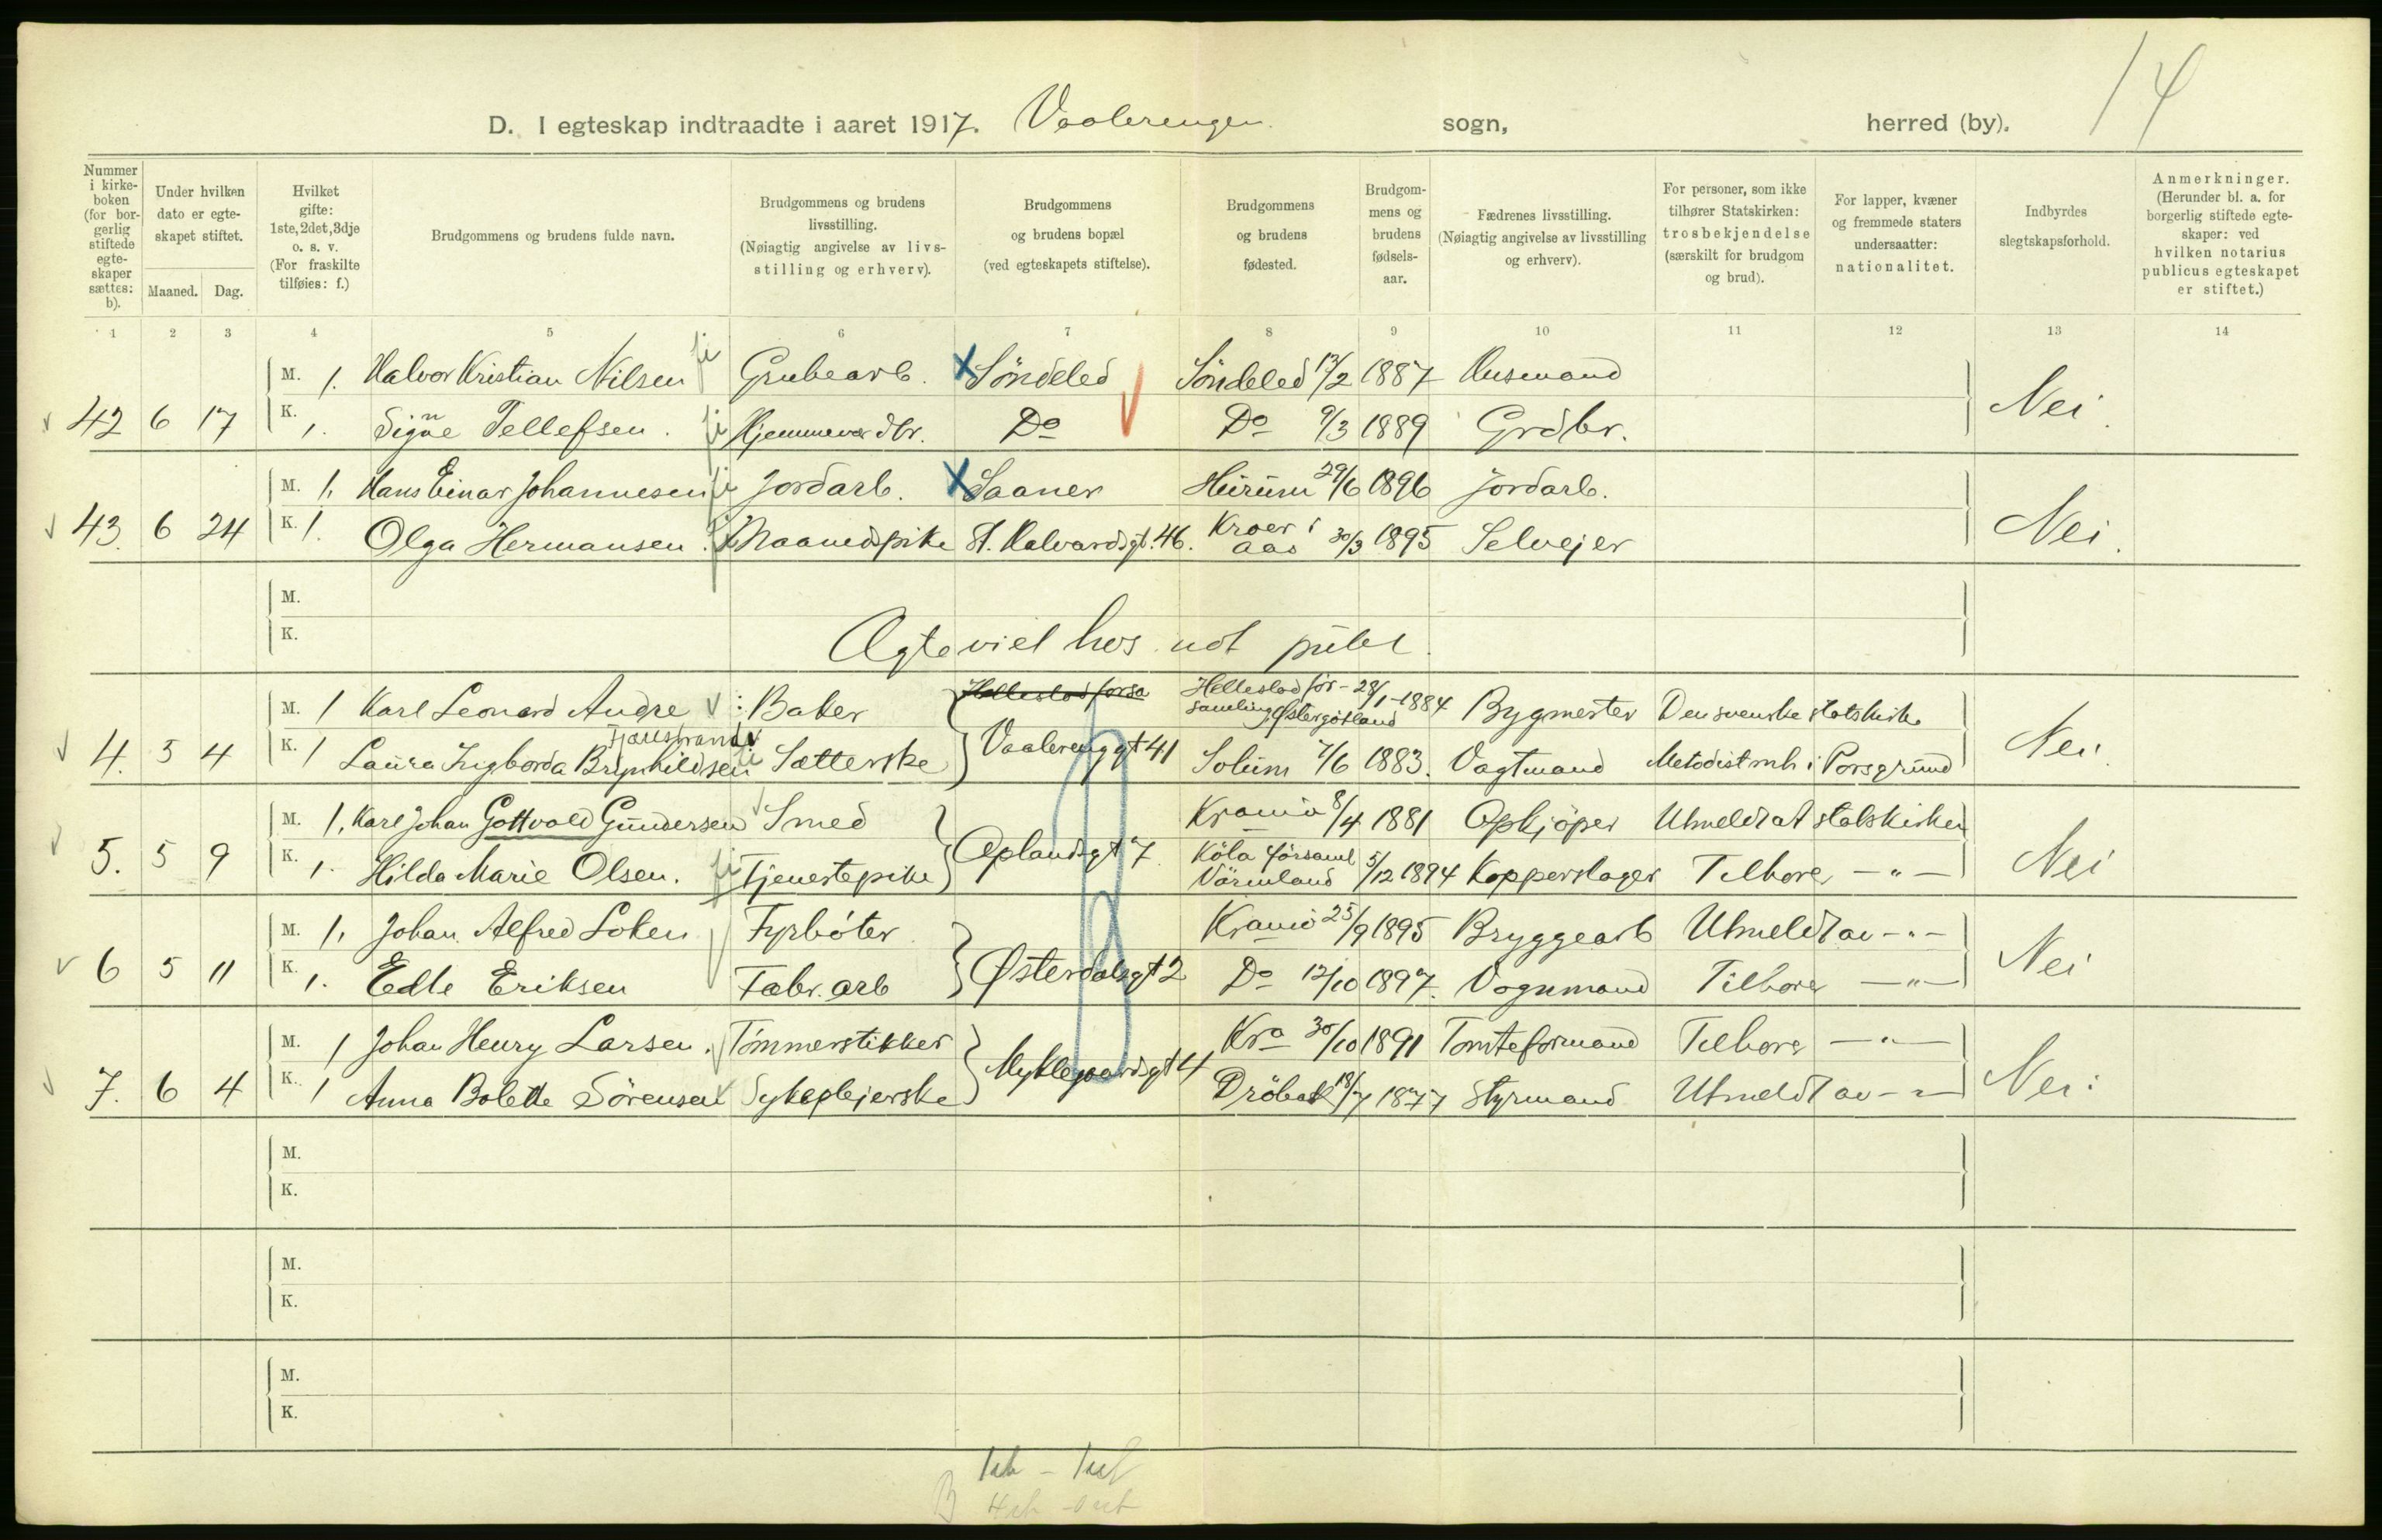 14
D. I egteskap indtraadte i aaret 1917. Vaalerengen sogn, herred (by).
Nummer i kirke- boken (for bor- gerlig stiftede egte- skaper sættes: b).
Under hvilken dato er egte- skapet stiftet.
Maaned. Dag.
Hvilket gifte: 1ste, 2det, 3dje o. s. v. (For fraskilte tilføies: f.)
Brudgommens og brudens fulde navn.
Brudgommens og brudens livsstilling. (Nøiagtig angivelse av livs- stilling og erhverv).
Brudgommens og brudens bopæl (ved egteskapets stiftelse).
Brudgommens og brudens fødested.
Brudgom- mens og brudens fødsels- aar.
Fædrenes livsstilling. (Nøiagtig angivelse av livsstilling og erhverv).
For personer, som ikke tilhører Statskirken: trosbekjendelse (særskilt for brudgom og brud).
For lapper, kvæner og fremmede staters undersaatter: nationalitet.
Indbyrdes slegtskapsforhold.
Anmerkninger. (Herunder bl. a. for borgerlig stiftede egte- skaper: ved hvilken notarius publicus egteskapet er stiftet.)
1 2 3 4 5 6 7 8 9 10 11 12 13 14
M. 1. Halvor Kristian Nilsen Grubearb. X Söndeled Söndeled 13/2 1887 Husmand
42 6 17 K. 1. Signe Tellefsen. Hjemmeværdbr. Do Do 9/3 1889 Grdbr. Nei.
M. 1. Hans Einar Johannesen Jordarb. X Saaner Hurum 29/6 1896 Jordarb.
43. 6 24 K. 1. Olga Hermansen. Maanedspike St. Halvardsgt. 46. Kroer i Aas 30/3 1895 Selvejer Nei.
M.
K.
Ægteviel hos not publ.
M. 1 Karl Leonard Andre Baker Helleslad för- samling Östergötland 28/1-1884 Bygmester Den svenske statskirke
4. 5 4 K. 1 Laura Ingborda Brynhildsen Fjällstrand Sætterske Vaalerenggt 41 Solum 7/6 1883. Vagtmand Metodistmh i Porsgrund Nei.
M. 1. Karl Johan Gottvald Gundersen Smed Krania 8/4 1881 Opkjöper Utmeldt at statskirken
5. 5 9 K. 1. Hilda Marie Olsen. Tjenestepike Oplandsgt 7. Köla församl Värmland 5/12 1894 Kopperslager Tilhører — " — Nei
M. 1. Johan Alfred Loken Fyrböter Krania 25/9 1895 Bryggearb Utmeldt av - " -
6 5 11 K. 1. Edle Eriksen Fabr. arb Østerdalsgt 2 Do 12/10 1897. Vognmand Tilhører — " — Nei
M. 1 Johan Henry Larsen. Tömmerstikker Kra 30/10 1891 Tomteformand Tilhører — " —
7. 6 4 K. 1 Anna Bolette Sörensen Sykeplejerske Myklegaardsgt 4 Dröbak 18/7 1877 Styrmand Utmeldt av - " - Nei.
M.
K.
M.
K.
M.
K.